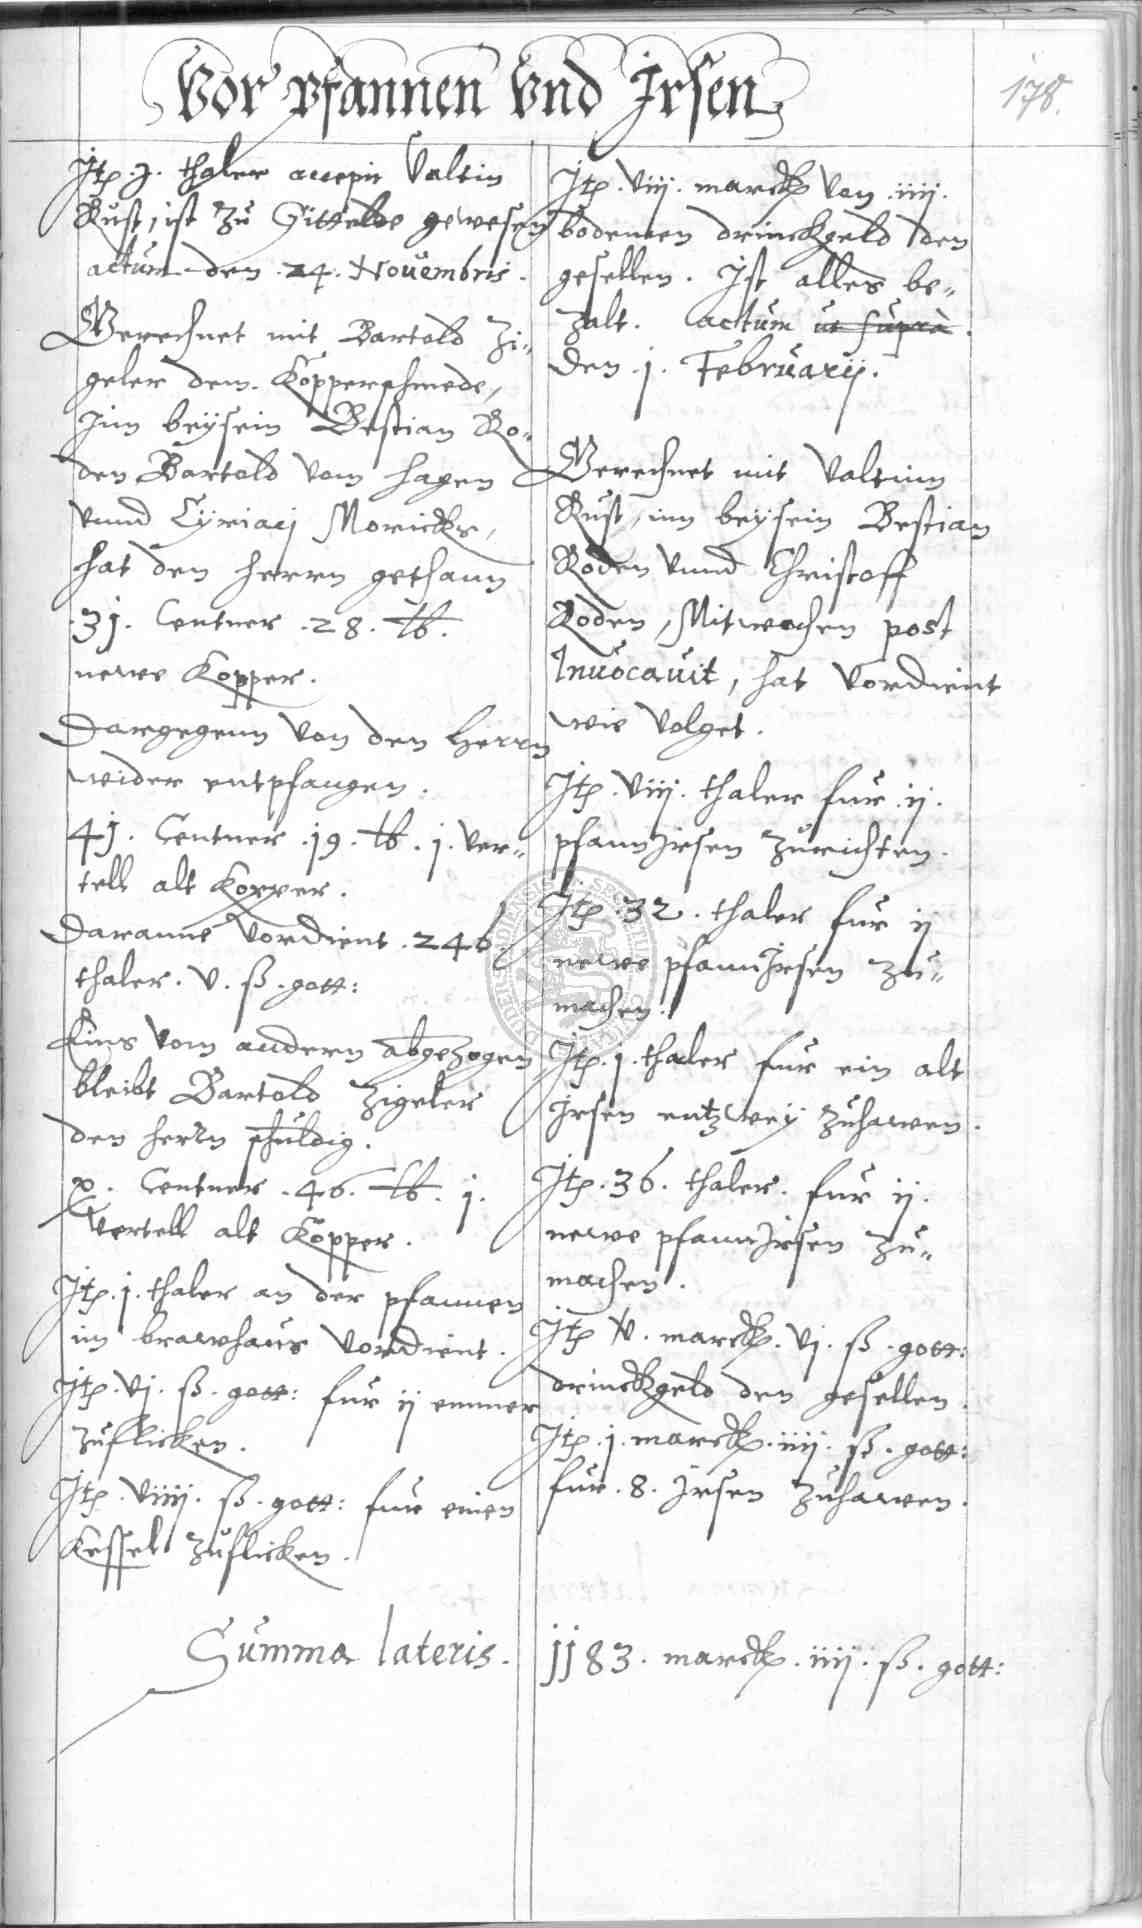 Vor pfannen Vnd Irsen
178.
Itp. j. thaler accepit Valtin
Rust, ist zu Gittelde gewesen
actum den .24. Nouembris.
Gerechnet mit Bartold Zi-
geler dem Kopperschmede,
Jnn beysein Bestian Ro-
den Bartold vom Hagen
vnnd Cyriacj Moricks,
hat den herrn gethann
.3j. Centner .28. lb.
newe Kopper.
Dargegenn von den Herrn
wider entpfangen.
4j. Centner .j9. lb. j. ver-
tell alt Kopper.
Daranne vordient .246.
thaler. v. ß. gott:
Eins vom andern abgezogen
bleibt Bartold Zigeler
den herrn schuldig.
x. Centner .46. lb. j.
vertell alt Kopper.
Itp. j. thaler an der pfannen
im brawhaus vordient.
Itp. vj. ß. gott: fur ij emmer
zuflicken.
Itp. viiij. ß. gott: fur einen
Kessel zuflicken.
Itp. viij. marck von .iiij.
bodemen drinckgeld den
gesellen. Ist alles be-
zalt. actum ut supra.
den .j. Februarij.
Gerechnet mit Valtinn
Rust, inn beysein Bestian
Roden vnnd Christoff
Roden, Mitwochen post
Inuocauit, hat vordient
wie volget.
Itp. viij. thaler fur .ij.
pfann Irsen zurichten.
Itp. 32. thaler fur ij
newe pfann Irsen zu-
machen.
Itp. j. thaler fur ein alt
Irsen entzwey zuhawen.
Itp. 36. thaler. fur ij.
newe pfann Irsen zu-
machen.
Itp v. marck. vj. ß. gott:
drinckgeld den gesellen.
Itp. j. marck. iiij. ß. gott:
fur .8. Irsen zuhawen.
Summa lateris. jj83. marck. iiij. ß. gott: